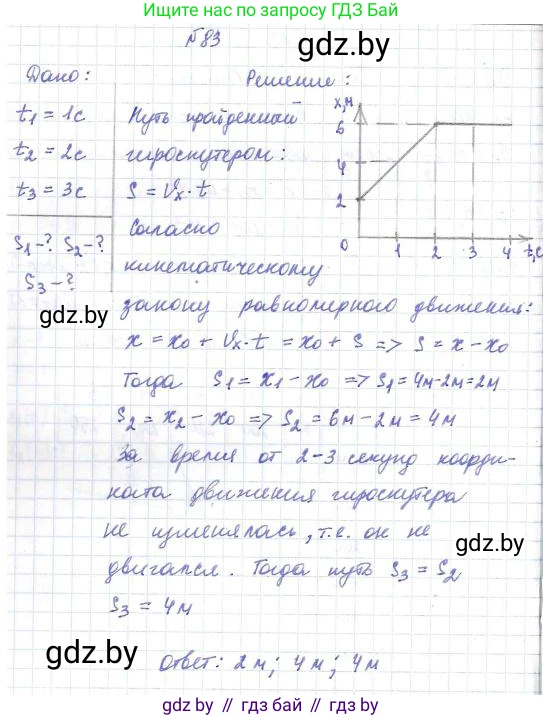 Ищите нас по запросу ГДЗ Бай
№83
gdz.by
Дано:
Решение:
t₁ = 1с
t₂ = 2с
t₃ = 3с
S₁-? S₂-?
S₃-?
gdz.by
Путь пройденный
гироскутером:
S = Vₓ·t
Согласно
кинематическому
x,м
6
4
2
0
1
2
3
4
t,с
закону равномерного движения:
x = x₀ + Vₓ·t = x₀ + S => S = x - x₀
Тогда S₁ = x₁ - x₀ => S₁ = 4м-2м=2м
S₂ = x₂ - x₀ => S₂ = 6м-2м = 4м
За время от 2-3 секунд коорди-
ната движения гироскутера
не изменялась, т.е. он не
gdz.by
двигался. Тогда путь S₃ = S₂
S₃ = 4м
gdz.by
Ответ: 2м; 4м; 4м
gdz.by // гдз бай // гдз.бу